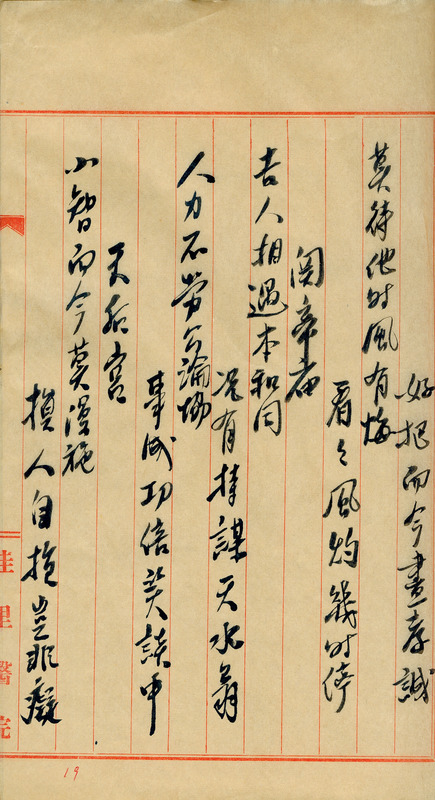 好把而今盡孝誠
莫待他时風有悔
看々風灼幾时停
関帝庙
吉人相遇本和同
况有持謀天水翁
人力不勞公論協
事成功倍笑談中
天后宮
小智而今莫漫施
損人自損豈非癡
佳里醫院
19